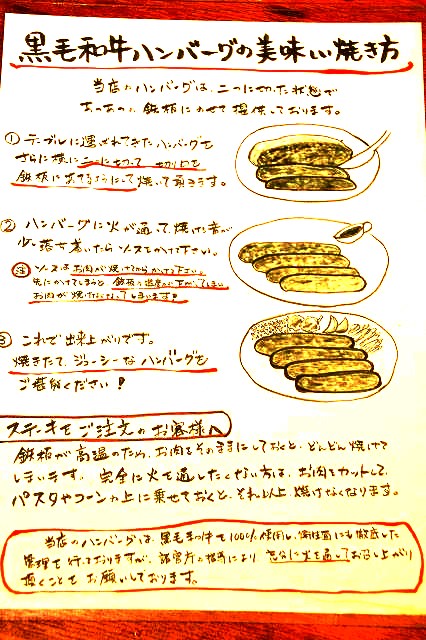 黒毛和牛ハンバーグの美味しい焼き方
当店のハンバーグは、二つに切った状態で
あつあつの鉄板にのせて提供しております。
① テーブルに運ばれてきたハンバーグを
さらに横に二つに切って 切り口を
鉄板にあてるようにして焼いて頂きます。
② ハンバーグに火が通って、焼ける音が
少し落ち着いたらソースをかけて下さい。
注 ソースはお肉が焼けてからかけ下さい。
先にかけてしまうと 鉄板の温度が下がってしまい
お肉が焼けなくなってしまいます!
③ これで出来上がりです。
焼きたて、ジューシーなハンバーグを
ご堪能ください!
ステーキをご注文のお客様へ
鉄板が高温のため、お肉をそのままにしておくと、どんどん焼けて
しまいます。完全に火を通したくない方は、お肉をカットして、
パスタやコーンの上に乗せておくと、それ以上、焼けなくなります。
当店のハンバーグは、黒毛和牛を100%使用し、衛生面にも徹底した
管理を行っておりますが、諸官庁の指導により 充分に火を通してお召し上がり
頂くことを お願いしております。